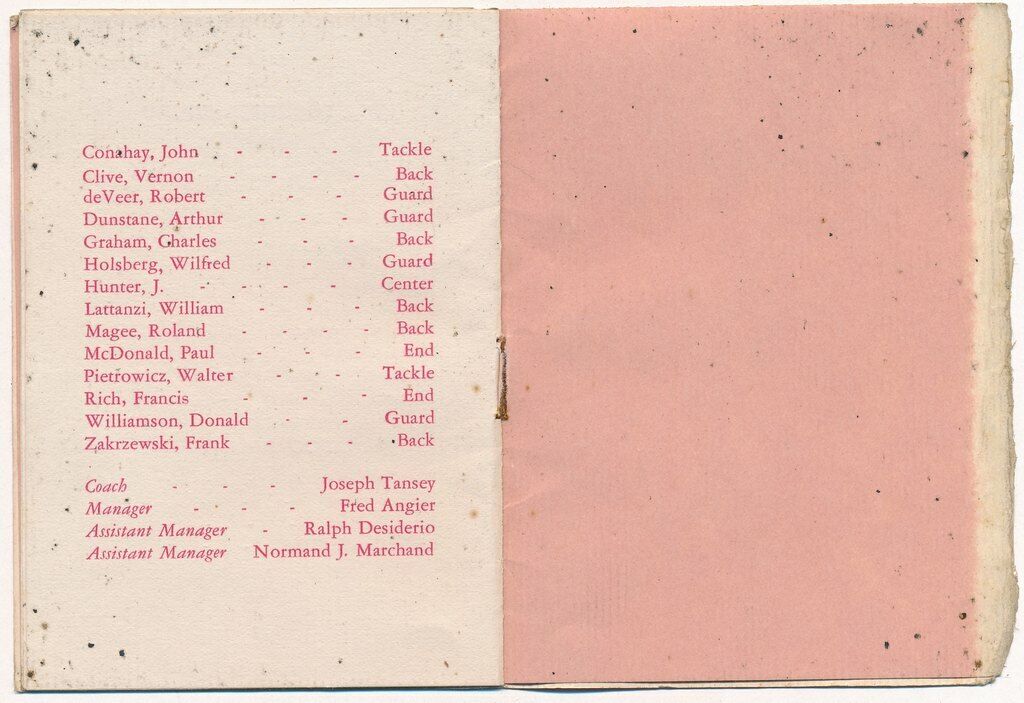 Conahay, John - - - Tackle
Clive, Vernon - - - - Back
deVeer, Robert - - - Guard
Dunstane, Arthur - - - Guard
Graham, Charles - - - Back
Holsberg, Wilfred - - - Guard
Hunter, J. - - - - Center
Lattanzi, William - - - Back
Magee, Roland - - - - Back
McDonald, Paul - - - End
Pietrowicz, Walter - - - Tackle
Rich, Francis - - - End
Williamson, Donald - - Guard
Zakrzewski, Frank - - - Back
Coach - - - Joseph Tansey
Manager - - - Fred Angier
Assistant Manager - Ralph Desiderio
Assistant Manager Normand J. Marchand